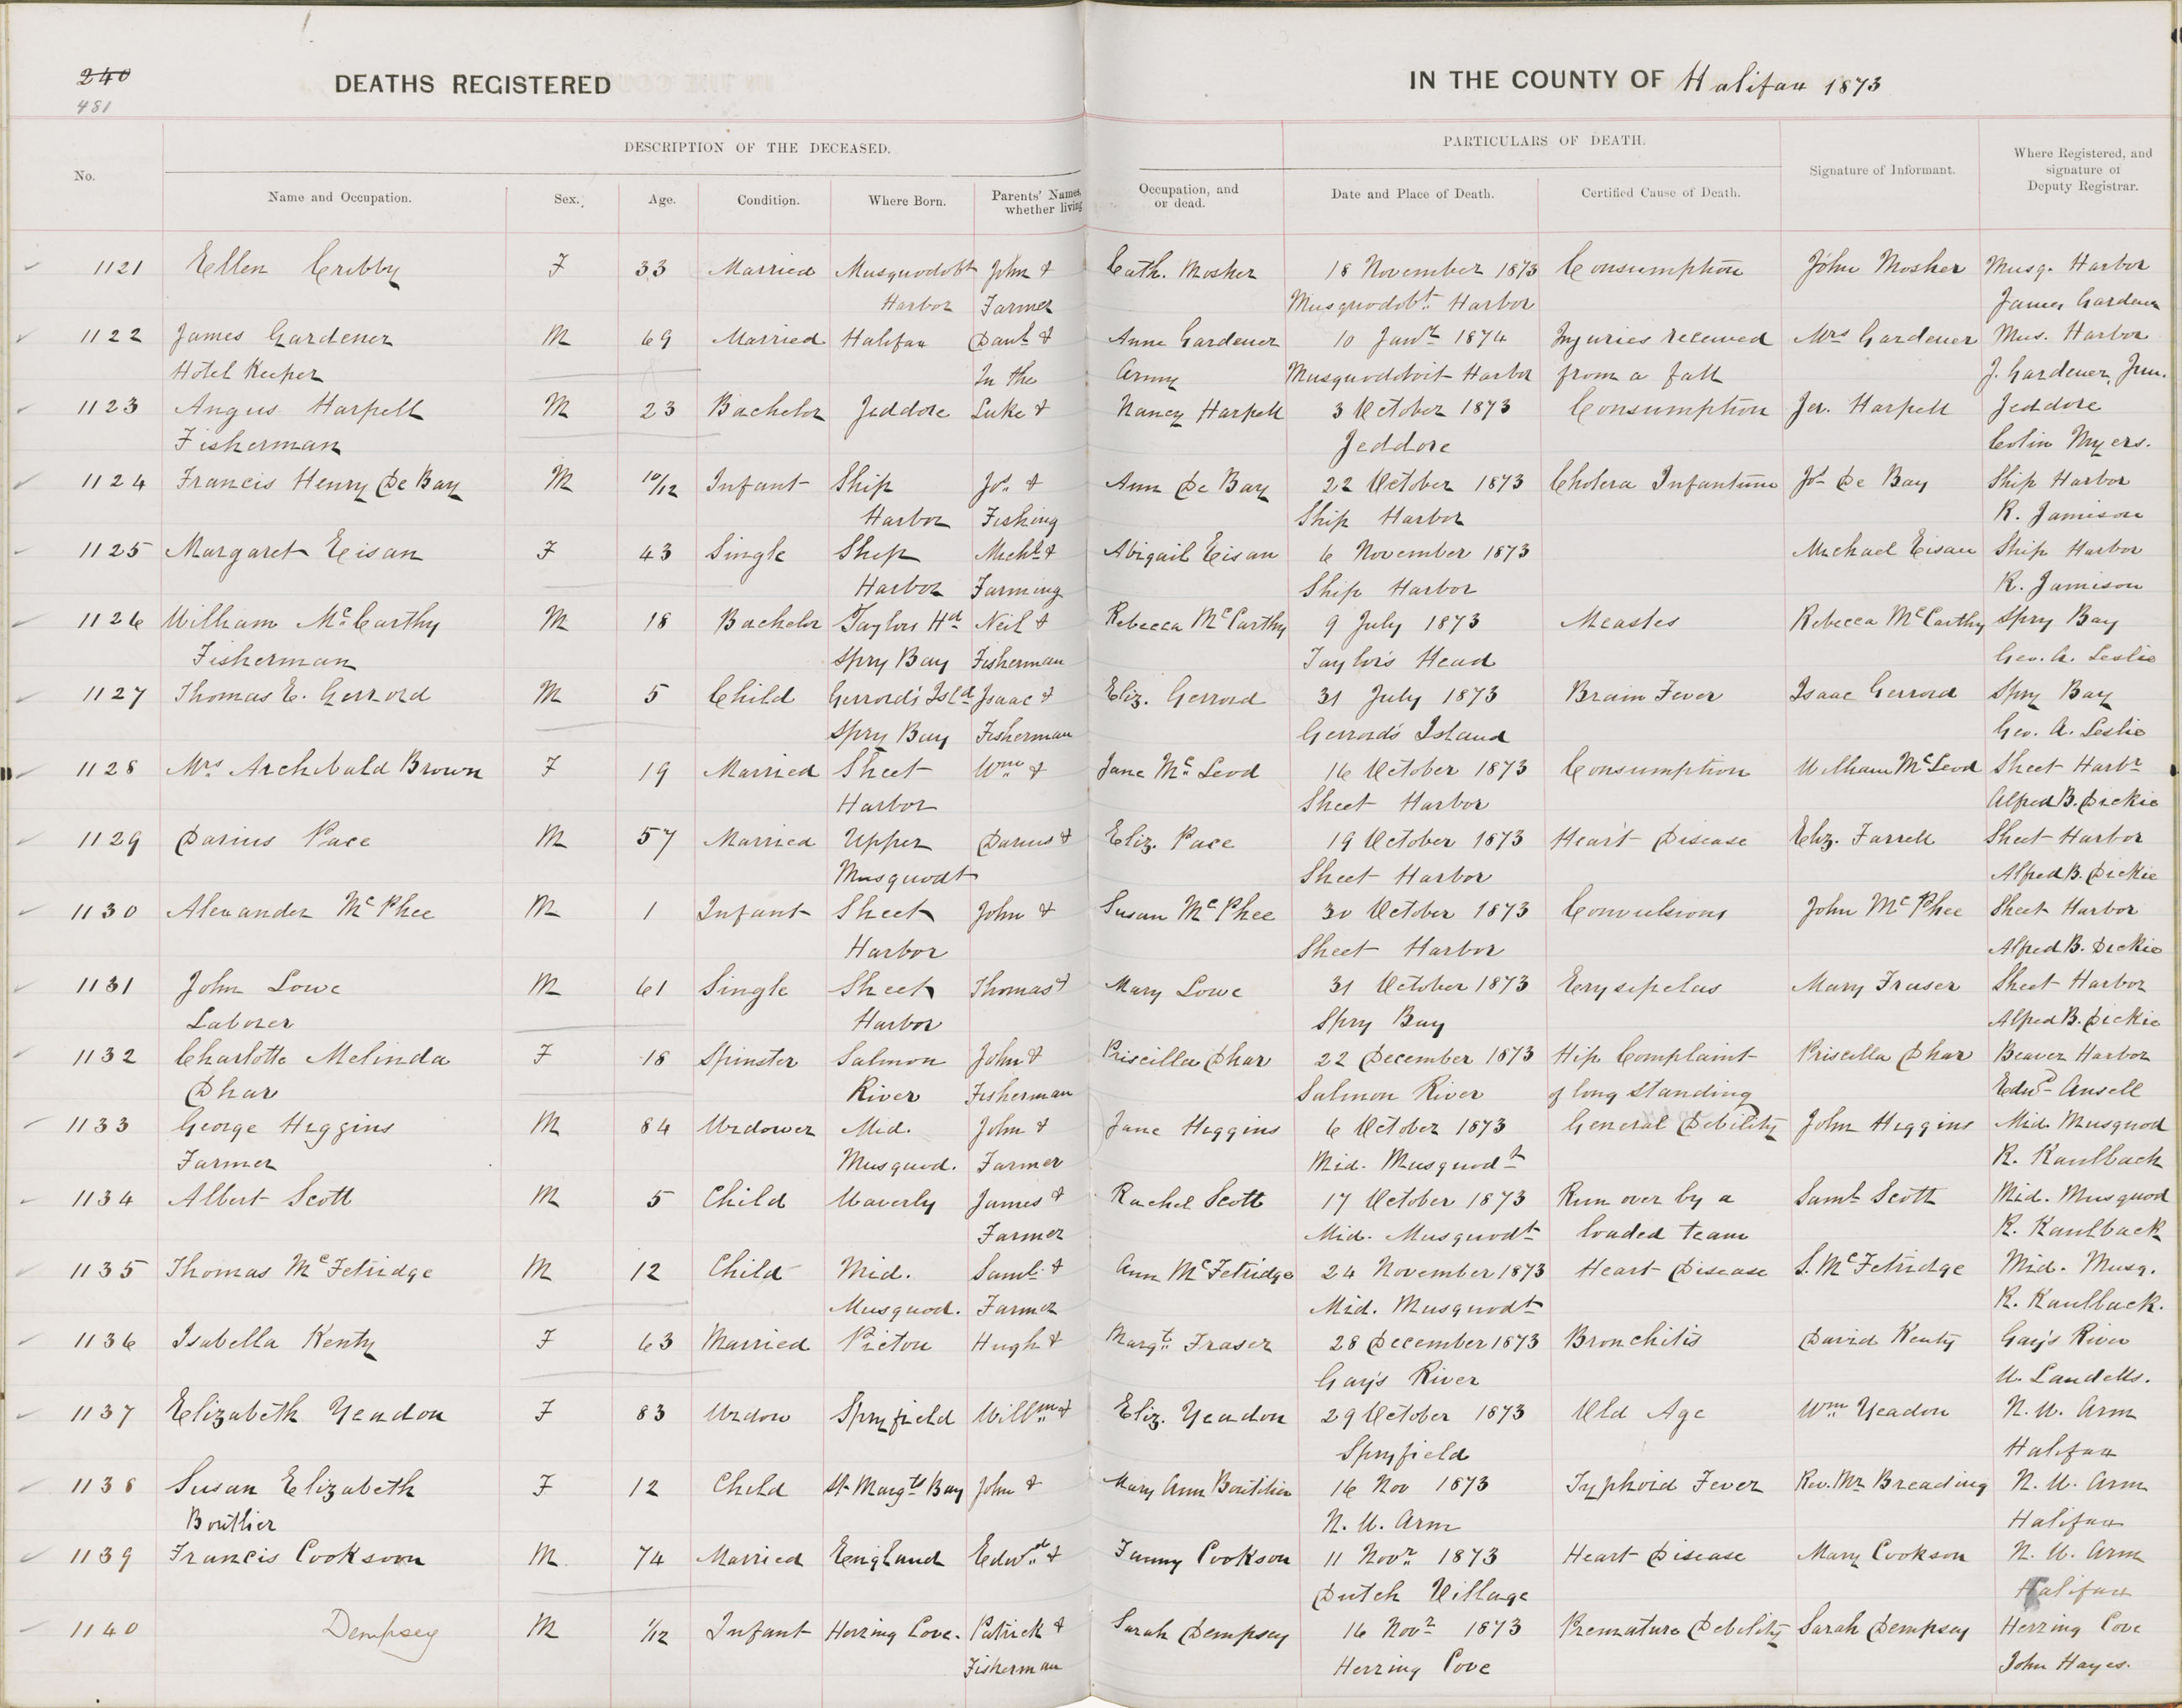 240
481
DEATHS REGISTERED
IN THE COUNTY OF Halifax 1873
DESCRIPTION OF THE DECEASED.
PARTICULARS OF DEATH.
No.
Name and Occupation.
Sex.
Age.
Condition.
Where Born.
Parents' Names, whether living
Occupation, and or dead.
Date and Place of Death.
Certified Cause of Death.
Signature of Informant.
Where Registered, and signature of Deputy Registrar.
1121 Ellen Cribby F 33 Married Musquodobt John & Cath. Mosher 18 November 1873 Consumption John Mosher Musq. Harbor
Harbor Farmer Musquodobt. Harbor James Gardener
1122 James Gardener M 69 Married Halifax Danl & Anne Gardener 10 Janr 1874 Injuries received Mrs Gardener Mus. Harbor
Hotel Keeper In the Army Musquodoboit Harbor from a fall J. Gardener, Jun.
1123 Angus Harpell M 23 Bachelor Jeddore Luke & Nancy Harpell 3 October 1873 Consumption Jer. Harpell Jeddore
Fisherman Jeddore Colin Myers.
1124 Francis Henry De Bay M 10/12 Infant Ship Jos. & Ann De Bay 22 October 1873 Cholera Infantum Js De Bay Ship Harbor
Harbor Fishing Ship Harbor R. Jamison
1125 Margaret Eisan F 43 Single Ship Michl & Abigail Eisan 6 November 1873 Michael Eisan Ship Harbor
Harbor Farming Ship Harbor R. Jamison
1126 William McCarthy M 18 Bachelor Taylors Hd Neil & Rebecca McCarthy 9 July 1873 Measles Rebecca McCarthy Spry Bay
Fisherman Spry Bay Fisherman Taylor's Head Geo. A. Leslie
1127 Thomas E. Gerrord M 5 Child Gerrord's Isld Isaac & Eliz. Gerrord 31 July 1873 Brain Fever Isaac Gerrord Spry Bay
Spry Bay Fisherman Gerrord's Island Geo. A. Leslie
1128 Mrs Archibald Brown F 19 Married Sheet Wm & Jane McLeod 16 October 1873 Consumption William McLeod Sheet Harbr
Harbor Sheet Harbor Alfred B. Dickie
1129 Darius Pace M 57 Married Upper Darius & Eliz. Pace 19 October 1873 Heart Disease Eliz. Farrell Sheet Harbor
Musquodt Sheet Harbor Alfred B. Dickie
1130 Alexander McPhee M 1 Infant Sheet John & Susan McPhee 30 October 1873 Convulsions John McPhee Sheet Harbor
Harbor Sheet Harbor Alfred B. Dickie
1131 John Lowe M 61 Single Sheet Thomas & Mary Lowe 31 October 1873 Erysipelas Mary Fraser Sheet Harbor
Laborer Harbor Spry Bay Alfred B. Dickie
1132 Charlotte Melinda F 18 Spinster Salmon John & Priscilla Phar 22 December 1873 Hip Complaint Priscilla Phar Beaver Harbor
Phar River Fisherman Salmon River of long standing Edwd Ansell
1133 George Higgins M 84 Widower Mid. John & Jane Higgins 6 October 1873 General Debility John Higgins Mid. Musquod
Farmer Musquod. Farmer Mid. Musquodt R. Kaulback
1134 Albert Scott M 5 Child Waverly James & Rachel Scott 17 October 1873 Run over by a Saml Scott Mid. Musquod
Farmer Mid. Musquodt loaded team R. Kaulback
1135 Thomas McFetridge M 12 Child Mid. Saml. & Ann McFetridge 24 November 1873 Heart Disease S. McFetridge Mid. Musq.
Musquod. Farmer Mid. Musquodt R. Kaulback.
1136 Isabella Kenty F 63 Married Pictou Hugh & Margt. Fraser 28 December 1873 Bronchitis David Kenty Gay's River
Gay's River W. Landells.
1137 Elizabeth Yeadon F 83 Widow Spryfield Willm & Eliz. Yeadon 29 October 1873 Old Age Wm Yeadon N. W. Arm
Spryfield Halifax
1138 Susan Elizabeth F 12 Child St Margts Bay John & Mary Ann Boutilier 16 Nov 1873 Typhoid Fever Rev. Mr Breading N. W. Arm
Boutlier N. W. Arm Halifax
1139 Francis Cookson M 74 Married England Edwd. & Fanny Cookson 11 Novr 1873 Heart Disease Mary Cookson N. W. Arm
Dutch Village Halifax
1140 Dempsey M 1/12 Infant Herring Cove. Patrick & Sarah Dempsey 16 Novr 1873 Premature Debility Sarah Dempsey Herring Cove
Fisherman Herring Cove John Hayes.